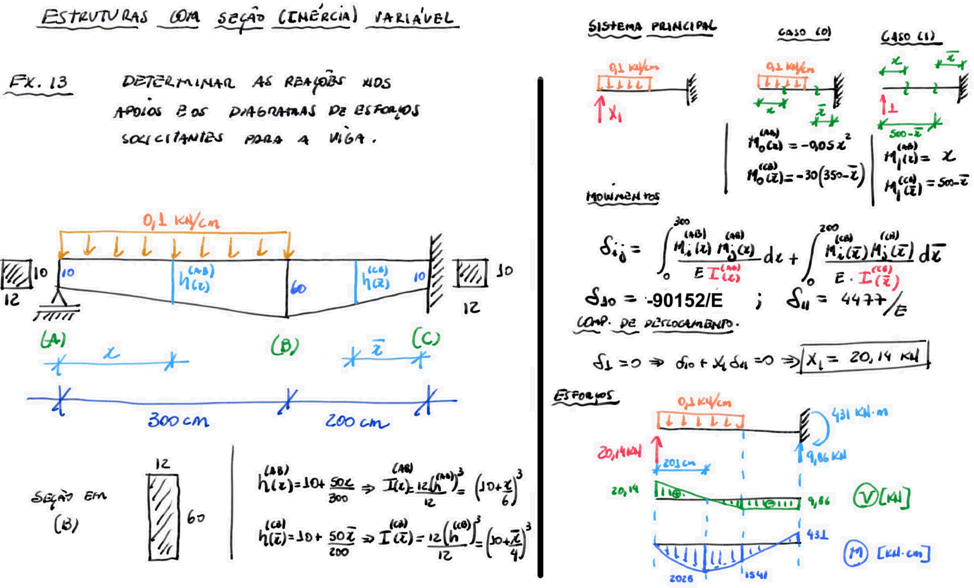 ESTRUTURAS COM SEÇÃO (INÉRCIA) VARIÁVEL
EX. 13 DETERMINAR AS REAÇÕES NOS
APOIOS E OS DIAGRAMAS DE ESFORÇOS
SOLICITANTES PARA A VIGA.
0,1 KN/cm
10 10 h(x)^(AB) 60 h(x̄)^(CB) 10 10
12 12
(A) (B) (C)
x x̄
300 cm 200 cm
SEÇÃO EM
(B)
12
60
h(x)^(AB) = 10 + 50x/300 ⇒ I(x)^(AB) = 12(h^(AB))^3/12 = (10 + x/6)^3
h(x̄)^(CB) = 10 + 50x̄/200 ⇒ I(x̄)^(CB) = 12(h^(CB))^3/12 = (10 + x̄/4)^3
SISTEMA PRINCIPAL
0,1 KN/cm
X₁
CASO (0)
0,1 KN/cm
x x̄
M₀(x)^(AB) = -0,05x²
M₀(x̄)^(CB) = -30(350-x̄)
CASO (1)
x x̄
1
500-x̄
M₁(x)^(AB) = x
M₁(x̄)^(CB) = 500-x̄
MOVIMENTOS
δij = ∫₀³⁰⁰ Mi(x)^(AB) Mj(x)^(AB) / E I(x)^(AB) dx + ∫₀²⁰⁰ Mi(x̄)^(CB) Mj(x̄)^(CB) / E · I(x̄)^(CB) dx̄
δ10 = -90152/E ; δ11 = 4477/E
COMP. DE DESLOCAMENTO.
δ1 = 0 ⇒ δ10 + X₁δ11 = 0 ⇒ X₁ = 20,14 KN
ESFORÇOS
0,1 KN/cm
431 KN·m
20,14 KN 9,86 KN
201 cm
20,14 ⊕ ⊖ 9,86 V [KN]
431
2028 1541 M [KN·cm]